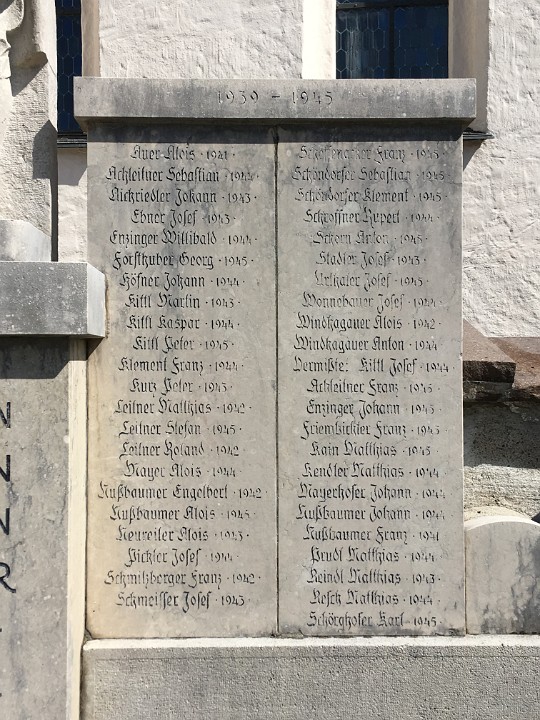 1939 - 1945
Auer Alois · 1941 ·
Achleitner Sebastian · 1942 ·
Aichriedler Johann · 1943 ·
Ebner Josef · 1943 ·
Enzinger Willibald · 1944 ·
Forsthuber Georg · 1945 ·
Höfner Johann · 1944 ·
Kittl Martin · 1943 ·
Kittl Kaspar · 1944 ·
Kittl Peter · 1945 ·
Klement Franz · 1944 ·
Kurz Peter · 1943 ·
Leitner Matthias · 1942 ·
Leitner Stefan · 1945 ·
Leitner Roland · 1942 ·
Mayer Alois · 1944 ·
Nußbaumer Engelbert · 1942 ·
Nußbaumer Alois · 1945 ·
Neureiter Alois · 1943 ·
Pichler Josef · 1944 ·
Schmitzberger Franz · 1942 ·
Schmeisser Josef · 1943 ·
Franz · 1943 ·
Schöndorfer Sebastian · 1945
Schöndorfer Klement · 1945
Schroffner Rupert · 1944 ·
Schorn Anton · 1945 ·
Stadler Josef · 1943 ·
Urlkater Josef · 1943 ·
Wonnebauer Josef · 1944 ·
Windhagauer Alois · 1942 ·
Windhagauer Anton · 1944 ·
Vermißte: Kittl Josef · 1944
Achleitner Franz · 1943 ·
Enzinger Johann · 1943 ·
Friembichler Franz · 1943 ·
Kain Matthias · 1945 ·
Kendler Matthias · 1944
Mayerhofer Johann · 1944
Nußbaumer Johann · 1944
Nußbaumer Franz · 1941
Prudl Matthias · 1944 ·
Reindl Matthias · 1943 ·
Resch Matthias · 1944 ·
Schörghofer Karl · 1945
N
N
N
R